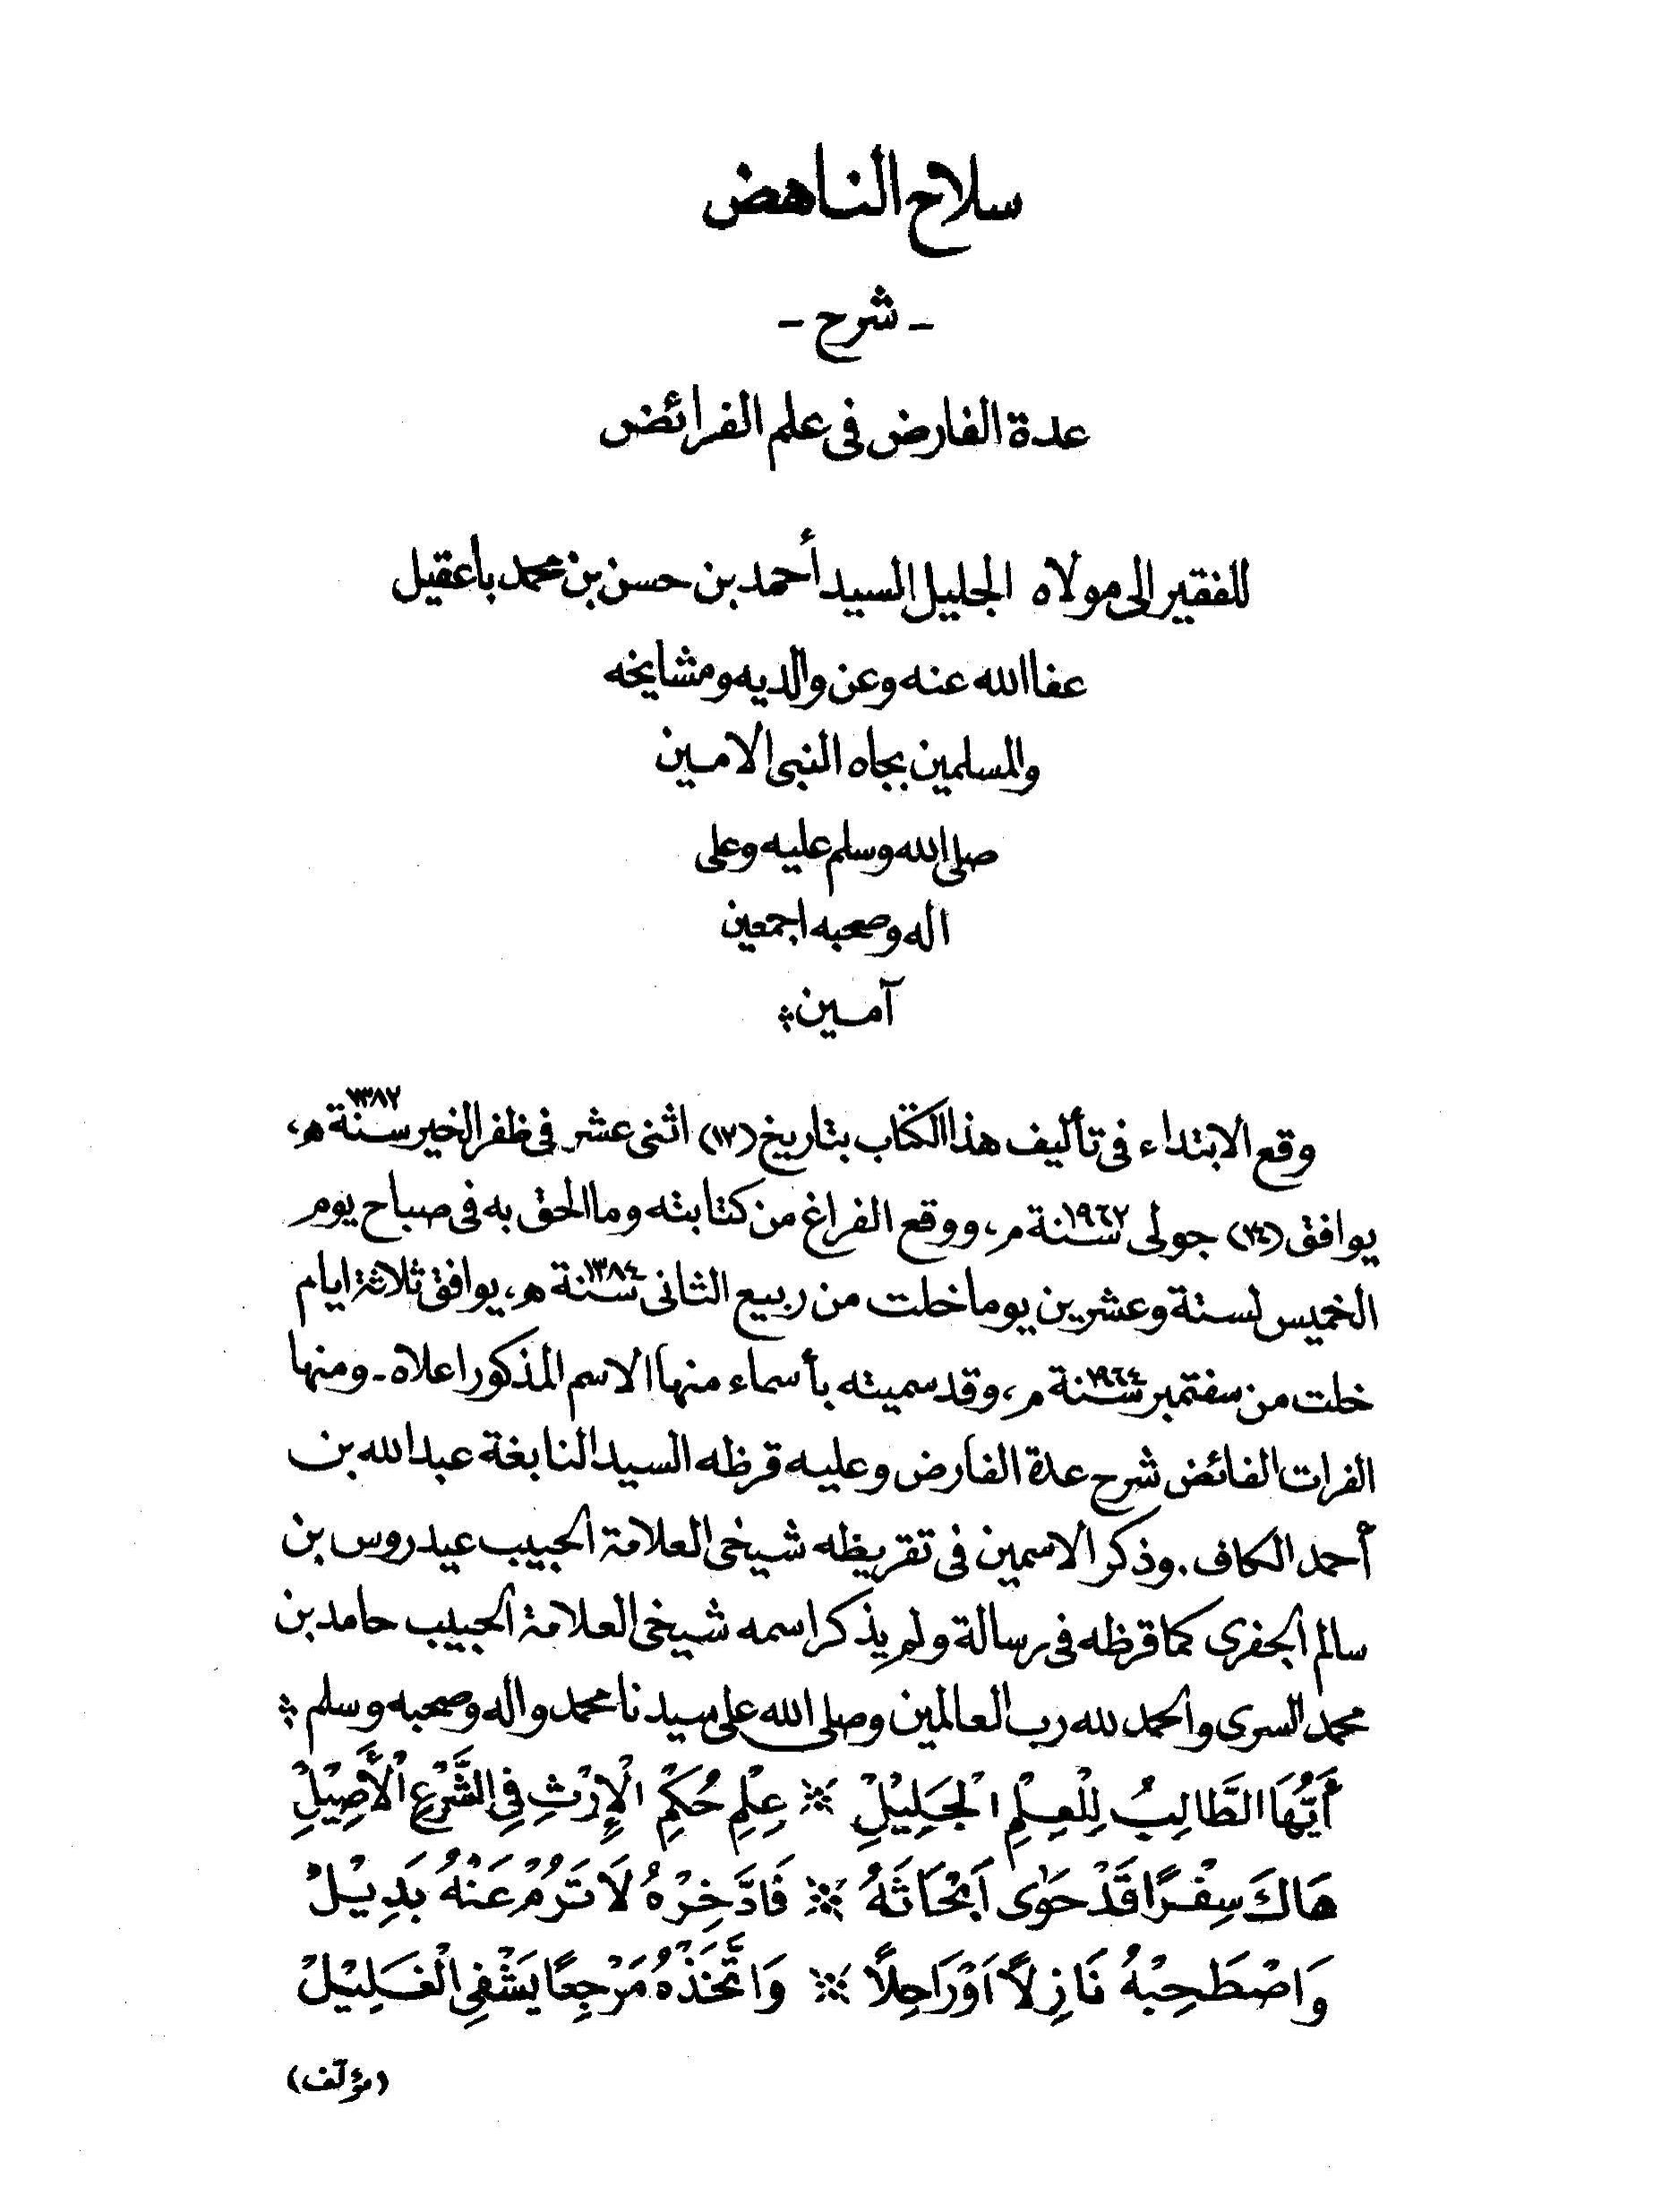 سلاح الناهض
- شرح -
عدة الفارض في علم الفرائض
للفقير الى مولاه الجليل السيد أحمد بن حسن بن محمد باعقيل
عفا الله عنه وعن والديه ومشايخه
والمسلمين بجاه النبي الامين
صلى الله وسلم عليه وعلى
اله وصحبه اجمعين
آمين
وقع الابتداء في تأليف هذا الكتاب بتاريخ (١٢) اثنى عشر في ظفر الخير سنة ١٣٨٢ هـ،
يوافق جولى سنة ١٩٦٢ م، ووقع الفراغ من كتابته وما الحق به في صباح يوم
الخميس لستة وعشرين يوما خلت من ربيع الثانى سنة ١٣٨٤ هـ، يوافق ثلاثة ايام
خلت من سفتمبر سنة ١٩٦٤ م، وقد سميته بأسماء منها الاسم المذكور اعلاه - ومنها
الفرات الفائض شرح عدة الفارض وعليه قرظه السيد النابغة عبد الله بن
أحمد الكاف. وذكر الاسمين في تقريظه شيخى العلامة الحبيب عيدروس بن
سالم الجفرى كما قرظه في رسالة ولم يذكر اسمه شيخى العلامة الحبيب حامد بن
محمد السرى والحمد لله رب العالمين وصلى الله على سيدنا محمد واله وصحبه وسلم
أَيُّهَا الطَّالِبُ لِلْعِلْمِ الْجَلِيْلِ ※ عِلْمِ حُكْمِ الْإِرْثِ فِي الشَّرْعِ الْأَصِيْلِ
هَاكَ سِفْرًا قَدْ حَوٰى اَبْحَاثَهُ ※ فَادَّخِرْهُ لَا تَرُمْ عَنْهُ بَدِيْلْ
وَاصْطَحِبْهُ نَازِلًا اَوْ رَاحِلًا ※ وَاتَّخِذْهُ مَرْجِعًا يَشْفِي الْغَلِيْلْ
(مؤلف)